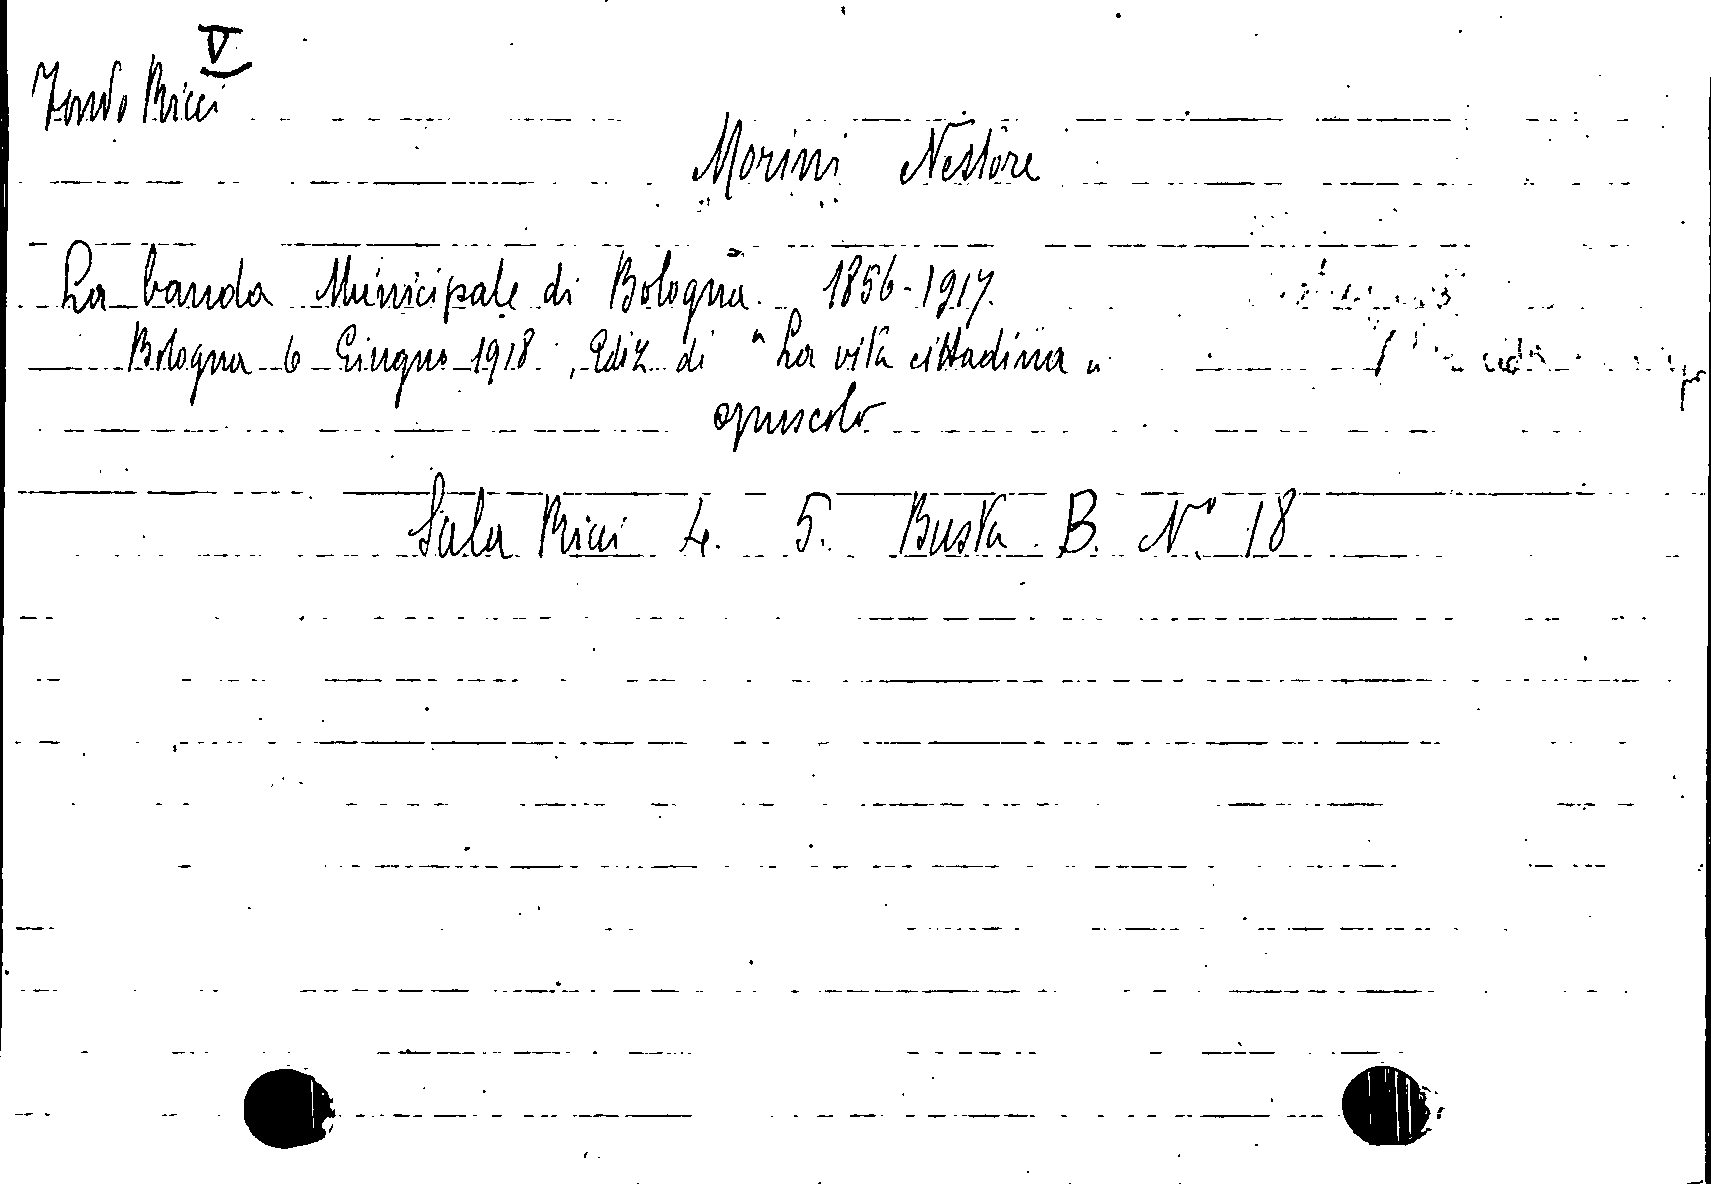 V
Fondo Ricci
Morini Nestore
La banda Municipale di Bologna. 1856-1917.
Bologna 6 Giugno 1918., Ediz. di "La vita cittadina"
opuscolo
Sala Ricci 4. 5. Busta B. N.° 18